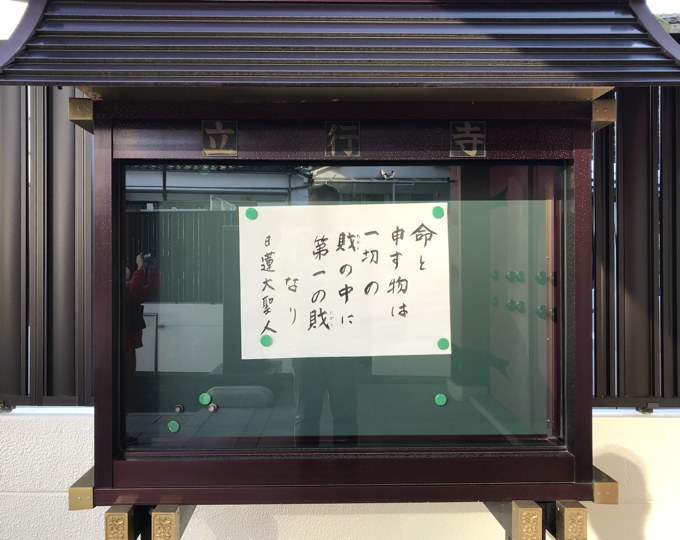 立行寺
命と
申す物は
一切の
財の中に
第一の財
なり
日蓮大聖人